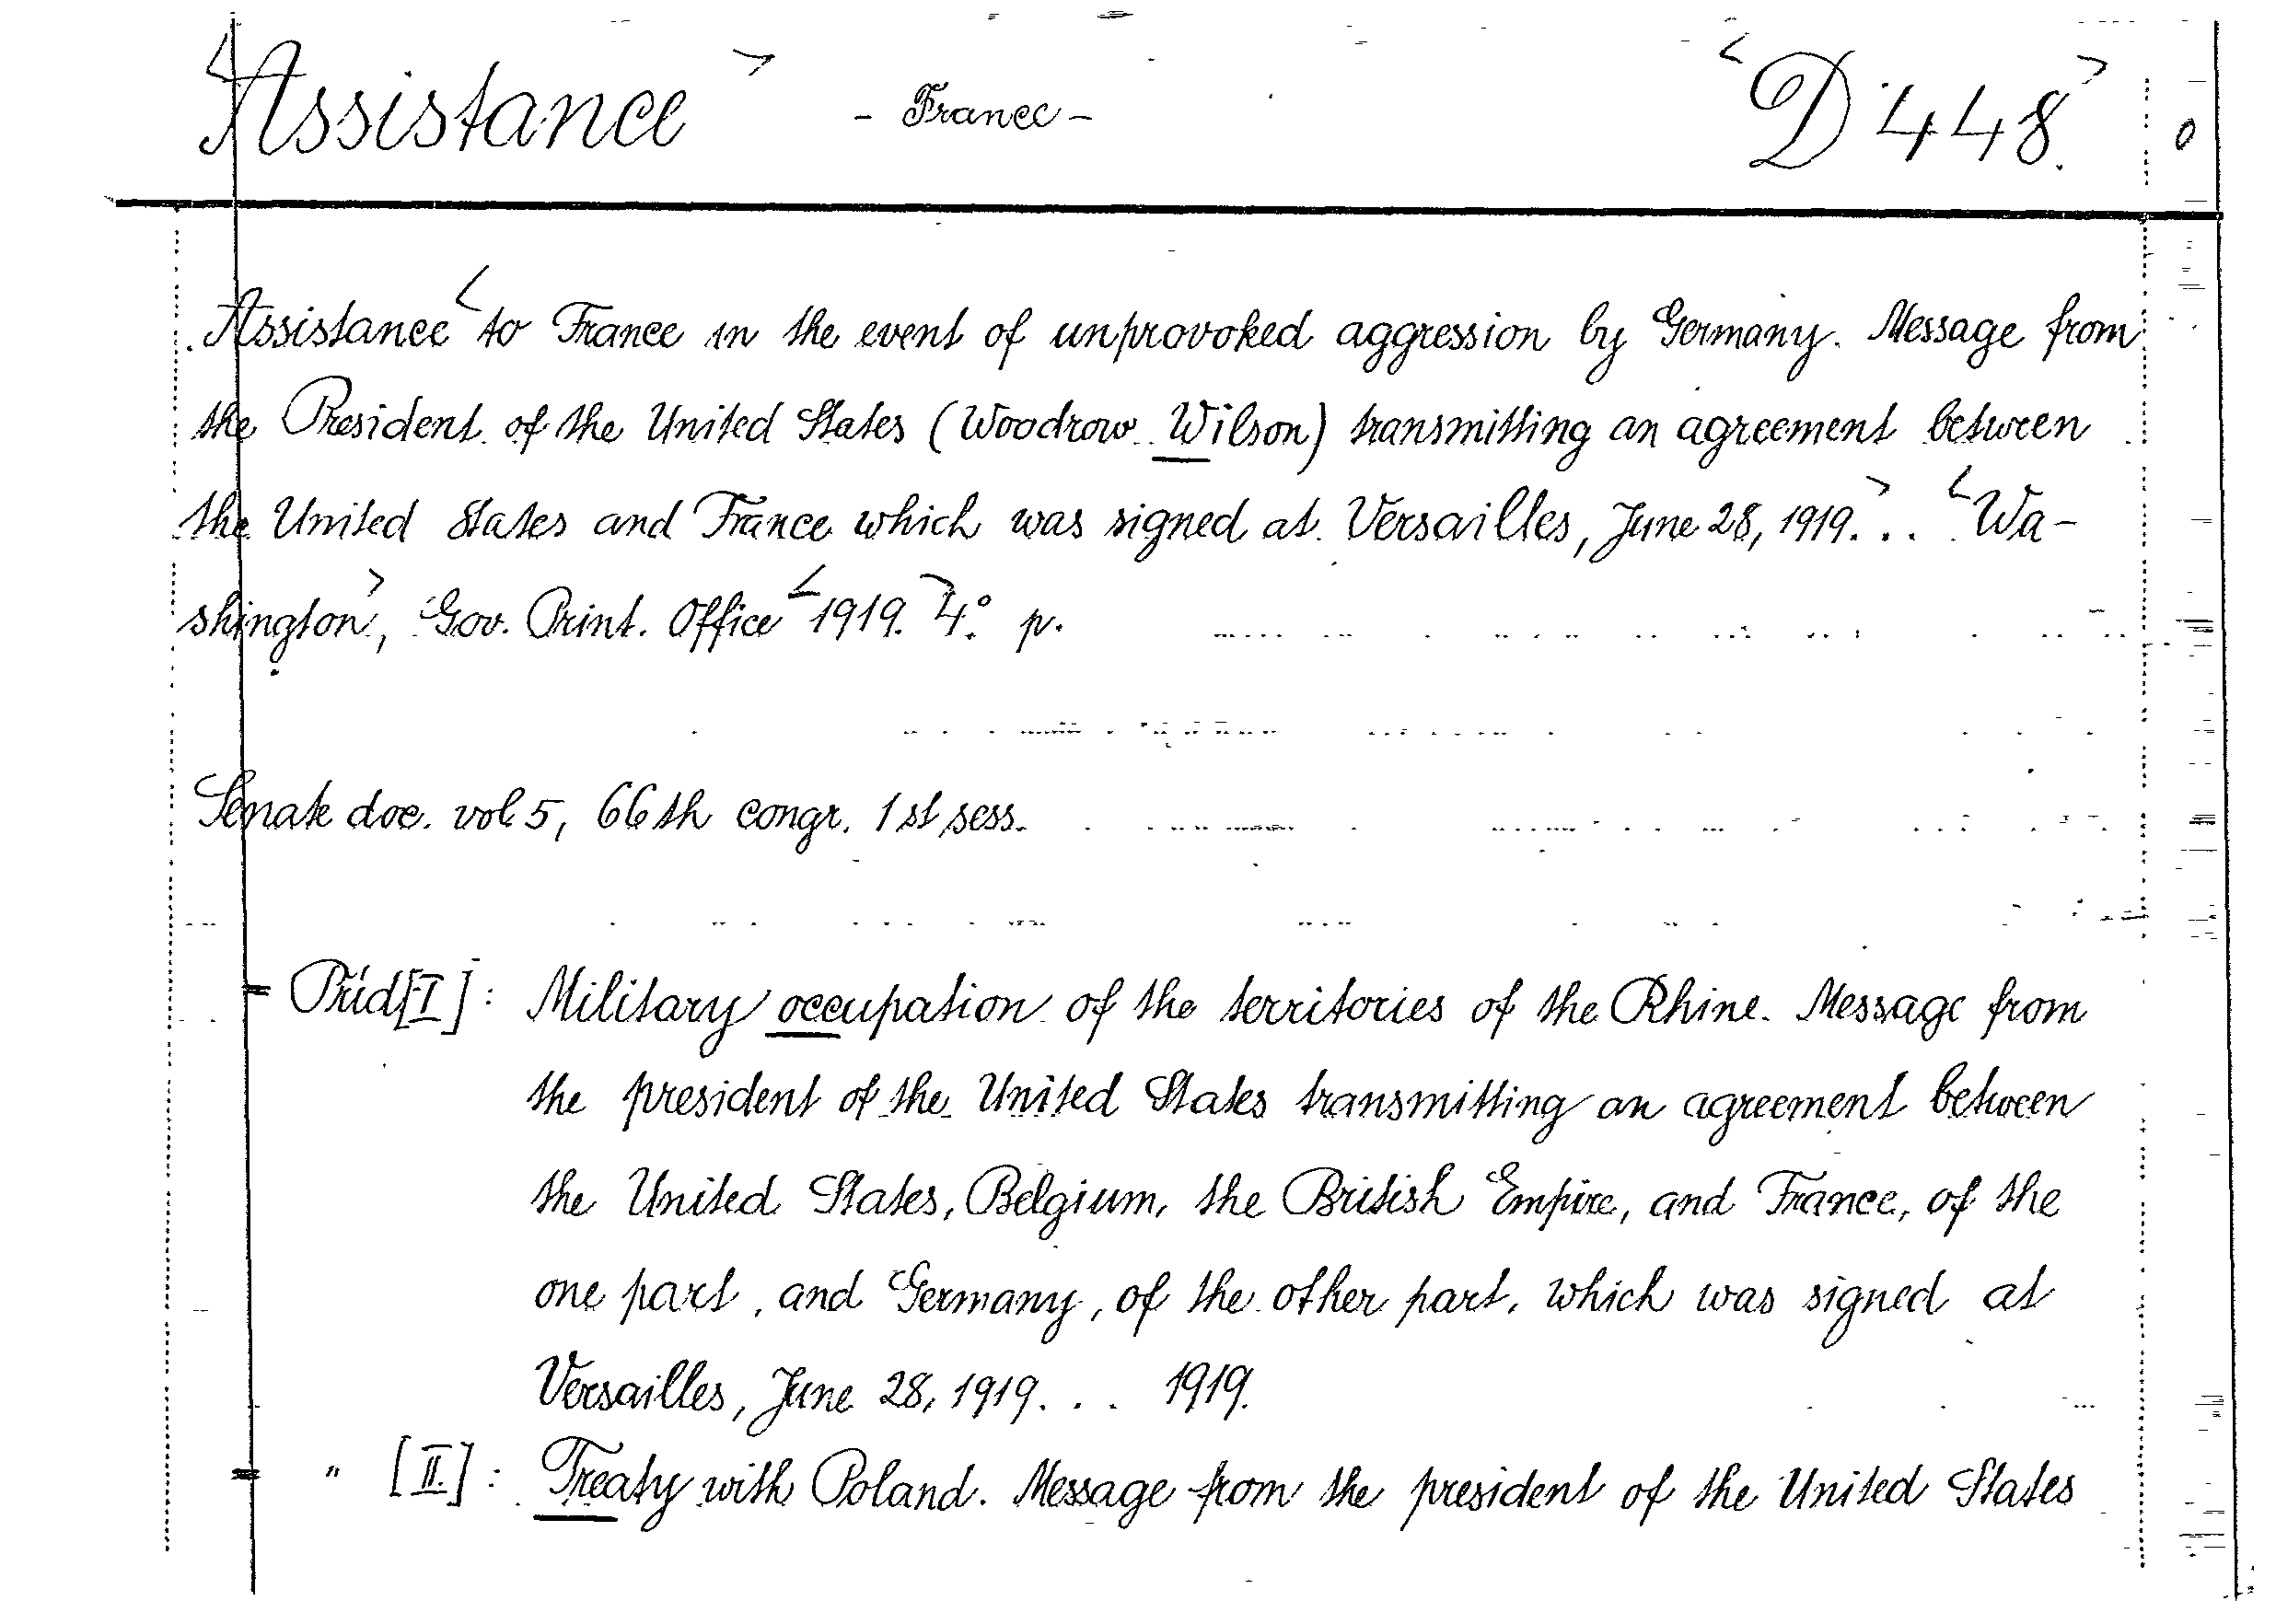 <Assistance> - France - <D 448> 0
Assistance < to France in the event of unprovoked aggression by Germany. Message from
the President of the United States (Woodrow Wilson) transmitting an agreement between
the United States and France which was signed at Versailles, June 28, 1919.> . . <Wa-
shington>, Gov. Print. Office <1919.> 4.° p.
Senate doc. vol 5, 66th congr. 1st sess.
= Přid[I]: Military occupation of the territories of the Rhine. Message from
the president of the United States transmitting an agreement between
the United States, Belgium, the British Empire, and France, of the
one part, and Germany, of the other part, which was signed at
Versailles, June 28, 1919. . . 1919.
= " [II.]: Treaty with Poland. Message from the president of the United States